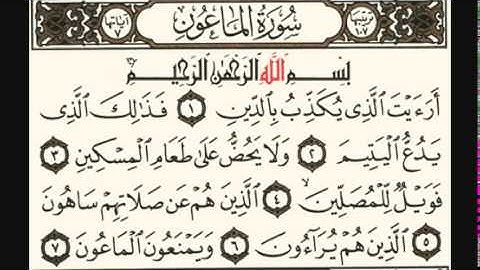 ترتيبها ١٠٧ سُورَةُ المَاعُون آياتها ٧
بِسْمِ ٱللَّهِ ٱلرَّحْمَٰنِ ٱلرَّحِيمِ
أَرَءَيْتَ ٱلَّذِى يُكَذِّبُ بِٱلدِّينِ ١ فَذَٰلِكَ ٱلَّذِى
يَدُعُّ ٱلْيَتِيمَ ٢ وَلَا يَحُضُّ عَلَىٰ طَعَامِ ٱلْمِسْكِينِ ٣
فَوَيْلٌ لِّلْمُصَلِّينَ ٤ ٱلَّذِينَ هُمْ عَن صَلَاتِهِمْ سَاهُونَ
٥ ٱلَّذِينَ هُمْ يُرَآءُونَ ٦ وَيَمْنَعُونَ ٱلْمَاعُونَ ٧